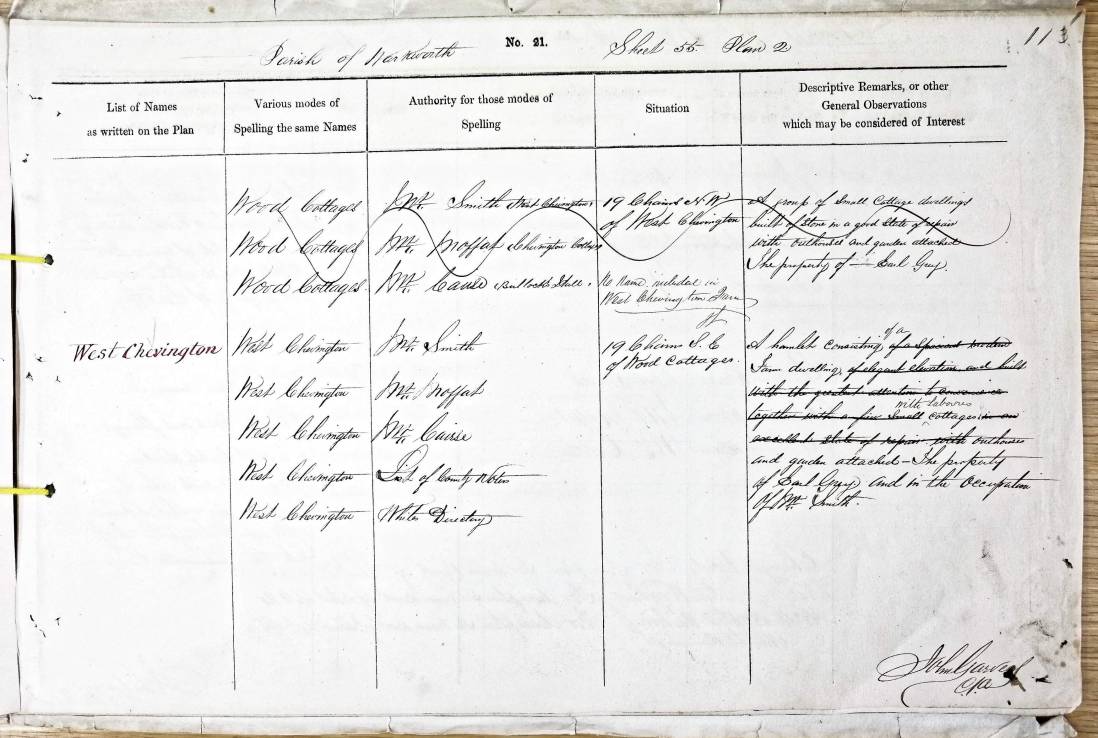 113
No. 21.
Parish of Warkworth
Sheet 55 Plan 2
List of Names
as written on the Plan
Various modes of
Spelling the same Names
Authority for those modes of
Spelling
Situation
Descriptive Remarks, or other
General Observations
which may be considered of Interest
Wood Cottages
Wood Cottages
Wood Cottages
Mr. Smith West Chevington
Mr. Moffat Chevington Cottage
Mr. Cairse Bullock's Hall
19 Chains N.W
of West Chevington
No Name, included in
West Chevington Farm
A group of Small Cottage dwellings
built of Stone in a good State of repair
with outhouses and garden attached
The property of Earl Grey.
West Chevington
West Chevington
West Chevington
West Chevington
West Chevington
West Chevington
Mr. Smith
Mr. Moffat
Mr. Cairse
List of County Voters
Whites Directory
19 Chains S.E
of Wood Cottages.
A hamlet consisting of a of a Spacious modern
Farm dwelling, of elegant elevation and built
with the greatest attention to
together with a few Small cottages in an
with labourers
excellent State of repair with outhouses
and garden attached - The property
of Earl Grey and in the Occupation
Of Mr. Smith.
John